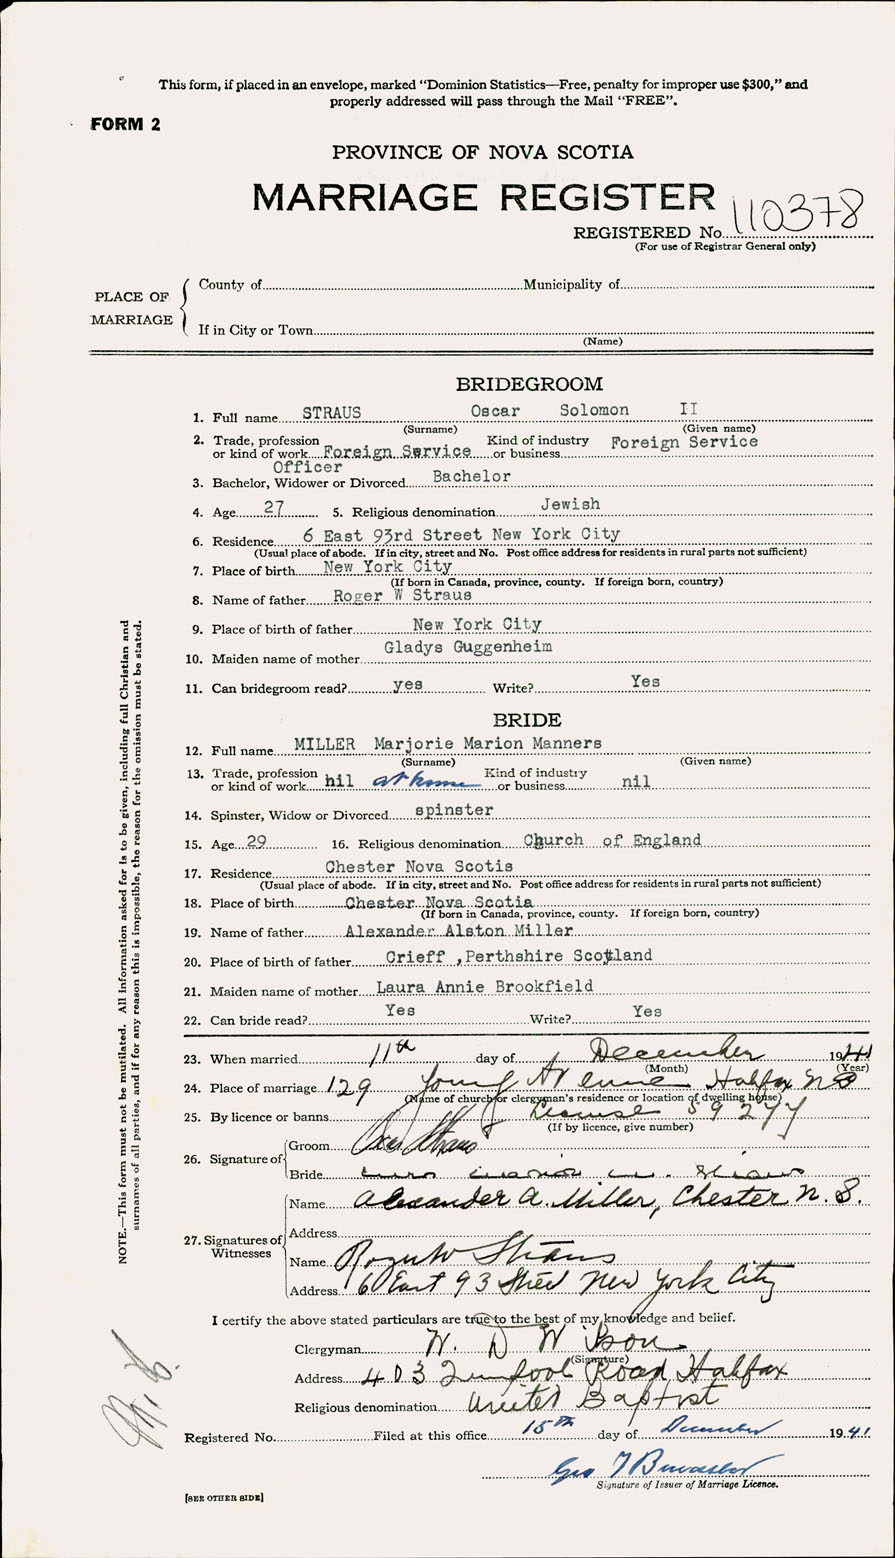 This form, if placed in an envelope, marked "Dominion Statistics—Free, penalty for improper use $300," and
properly addressed will pass through the Mail "FREE".
FORM 2
PROVINCE OF NOVA SCOTIA
MARRIAGE REGISTER
REGISTERED No. 110378
(For use of Registrar General only)
PLACE OF MARRIAGE
County of Municipality of
If in City or Town
(Name)
BRIDEGROOM
1. Full name STRAUS Oscar Solomon II
(Surname) (Given name)
2. Trade, profession or kind of work Foreign Service Officer Kind of industry or business Foreign Service
3. Bachelor, Widower or Divorced Bachelor
4. Age 27 5. Religious denomination Jewish
6. Residence 6 East 93rd Street New York City
(Usual place of abode. If in city, street and No. Post office address for residents in rural parts not sufficient)
7. Place of birth New York City
(If born in Canada, province, county. If foreign born, country)
8. Name of father Roger W Straus
9. Place of birth of father New York City
10. Maiden name of mother Gladys Guggenheim
11. Can bridegroom read? yes Write? Yes
BRIDE
12. Full name MILLER Marjorie Marion Manners
(Surname) (Given name)
13. Trade, profession or kind of work nil at home Kind of industry or business nil
14. Spinster, Widow or Divorced spinster
15. Age 29 16. Religious denomination Church of England
17. Residence Chester Nova Scotis
(Usual place of abode. If in city, street and No. Post office address for residents in rural parts not sufficient)
18. Place of birth Chester Nova Scotia
(If born in Canada, province, county. If foreign born, country)
19. Name of father Alexander Alston Miller
20. Place of birth of father Crieff ,Perthshire Scotland
21. Maiden name of mother Laura Annie Brookfield
22. Can bride read? Yes Write? Yes
23. When married 11th day of December 1941
(Month) (Year)
24. Place of marriage 129 Young Avenue Halifax N S
(Name of church or clergyman's residence or location of dwelling house)
25. By licence or banns License 59277
(If by licence, give number)
26. Signature of
Groom Oscar Straus
Bride
27. Signatures of Witnesses
Name Alexander A. Miller, Chester N. S.
Address
Name Roger W Straus
Address 6 East 93 Street New York City
I certify the above stated particulars are true to the best of my knowledge and belief.
Clergyman W. D Wilson
(Signature)
Address 403 Road Halifax
Religious denomination United Baptist
Registered No. Filed at this office 15th day of December 1941
Geo
Signature of Issuer of Marriage Licence.
[SEE OTHER SIDE]
NOTE.—This form must not be mutilated. All Information asked for is to be given, including full Christian and
surnames of all parties, and if for any reason this is impossible, the reason for the omission must be stated.